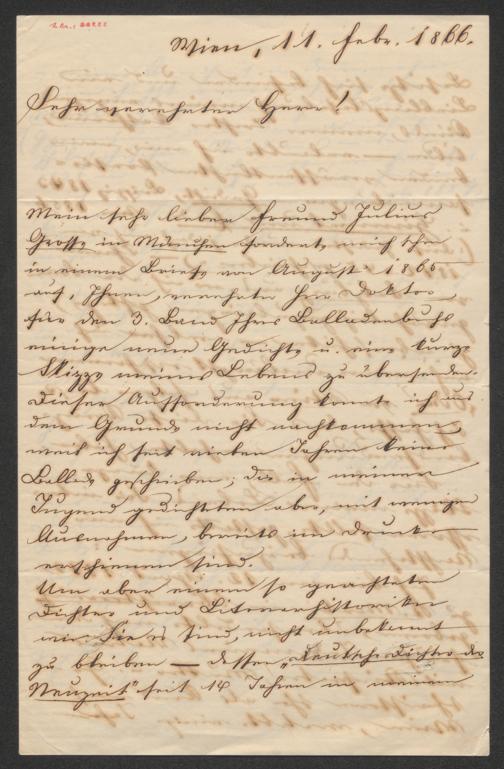 Wien, 11. Febr. 1866.
Sehr verehrter Herr!
Mein sehr lieber Freund Julius
Grosse in München forderte mich schon
in einem Briefe von August 1865
auf, Ihnen, verehrter Herr Doktor
für den 3. Band Ihres Balladenbuchs
einige neue Gedichte u. eine kurze
Skizze meines Lebens zu übersenden.
Dieser Aufforderung konnte ich aus
dem Grunde nicht nachkommen,
weil ich seit vielen Jahren keine
Ballade geschrieben; die in meiner
Jugend gedichteten aber, mit wenigen
Ausnahmen, bereits im Drucke
erschienen sind.
Um aber einem so geachteten
Dichter und Literarhistoriker
wie Sie es sind, nicht unbekannt
zu bleiben — dessen „Deutsche Dichter der
Neuzeit" seit 14 Jahren in meinen